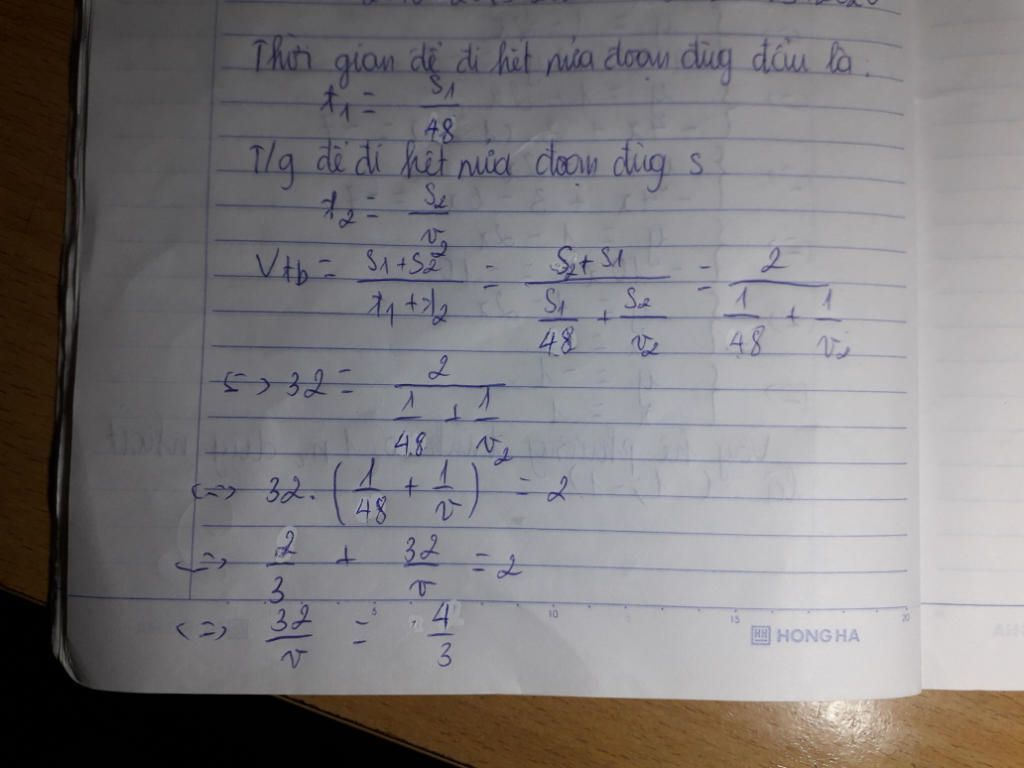 Thời gian để đi hết nửa đoạn đừg đầu là:
t1 = S1/48
T/g để đi hết nửa đoạn đừg s
t2 = S2/v2
Vtb = (S1+S2)/(t1+t2) = (S2+S1)/(S1/48 + S2/v2) = 2/(1/48 + 1/v2)
<=> 32 = 2/(1/48 + 1/v2)
<=> 32. (1/48 + 1/v) = 2
<=> 2/3 + 32/v = 2
<=> 32/v = 4/3
5 10 15 20
HH HONG HA